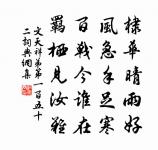 棣華晴雨好
風急手足寒
百戰今誰在
羈栖見汝難
文天祥弟第一百五十
二詞典網集